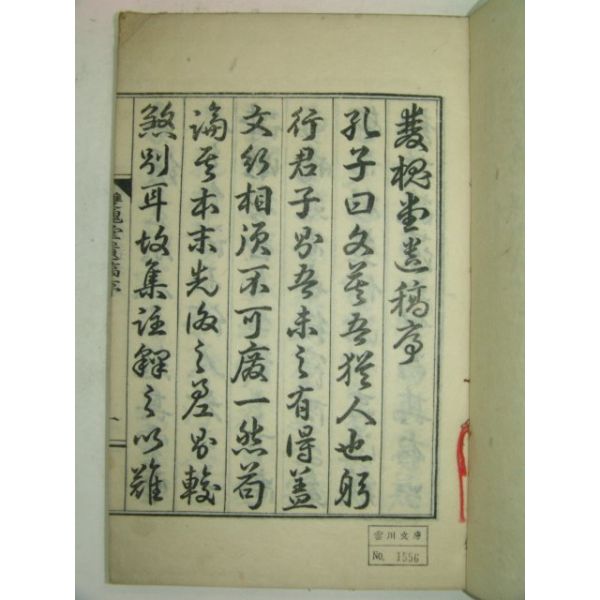 雙槐堂遺稿序
孔子曰文莫吾猶人也躬
行君子則吾未之有得盖
文行相須不可廢一然苟
論其本末先後之差則較
煞別耳故集註釋之以難
雙槐堂遺稿序
一
雲川文庫
No. 1556